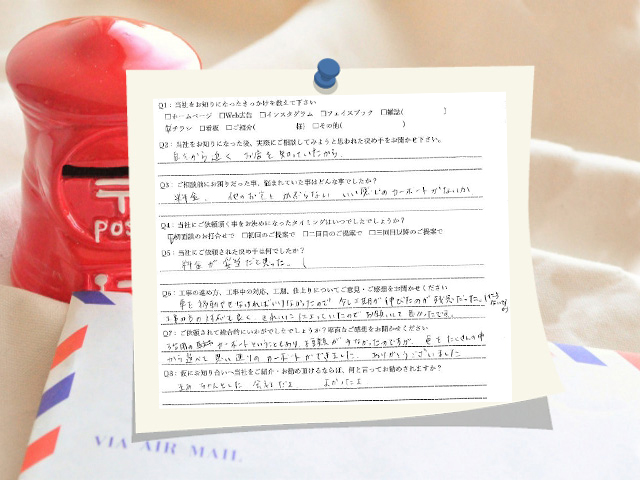 Q1：当社をお知りになったきっかけを教えて下さい
□ホームページ □Web広告 □インスタグラム □フェイスブック □雑誌( )
☑チラシ □看板 □ご紹介( 様) □その他( )
Q2：当社をお知りになった後、実際にご相談してみようと思われた決め手をお聞かせ下さい。
自宅から近く お店を知っていたから。
Q3：ご相談前にお困りだった事、悩まれていた事はどんな事でしたか？
料金。 他のお宅と かぶらない いい感じのカーポートがないか
Q4：当社にご依頼頂く事をお決めになったタイミングはいつでしたでしょうか？
☑初面談のお打合せで □初回のご提案で □二回目のご提案で □三回目以降のご提案で
Q5：当社にご依頼された決め手は何でしたか？
料金が 妥当だと思った。
Q6：工事の進め方、工事中の対応、工期、仕上りについてご意見・ご感想をお聞かせください
車を移動させなければいけなかったので 少し工期が伸びたのが残念だった。
工事の方の対応も良く きれいに して いたので お願いして 良かったです。
Q7：ご依頼されて総合的にいかがでしたでしょうか？率直なご感想をお聞かせください
カーポートということもあり、 が 少なかったのですが、 たくさんの中
から選べて 思い通りの カーポートができました。 ありがとうございました
Q8：仮にお知り合いへ当社をご紹介・お勧め頂けるならば、何と言ってお勧めされますか？
ちゃんとした 会社だよ よかったよ
POS
VIA AIR MAIL